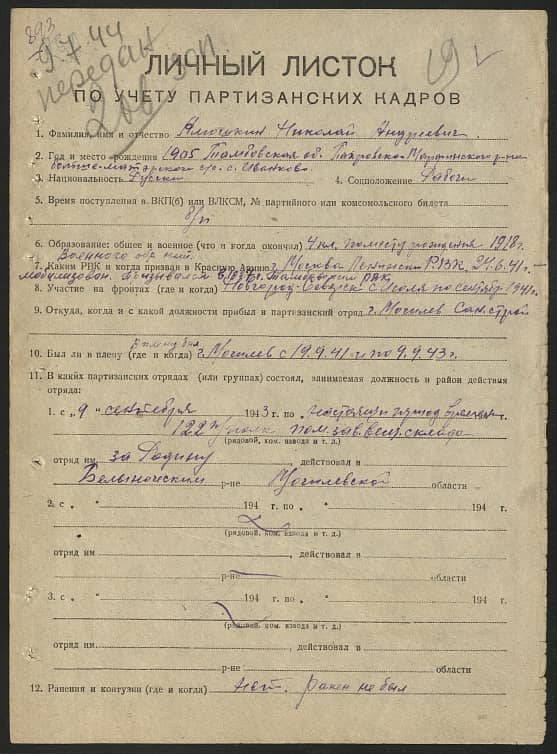 893
9.7.44
передан
ЛИЧНЫЙ ЛИСТОК
ПО УЧЕТУ ПАРТИЗАНСКИХ КАДРОВ
1. Фамилия, имя и отчество Николай Андреевич
2. Год и место рождения 1905 Тамбовская об.
с. Иваньково
3. Национальность Русский 4. Соцположение Рабочи
5. Время поступления в ВКП(б) или ВЛКСМ, № партийного или комсомольского билета
б/п
6. Образование: общее и военное (что и когда окончил) 4 кл. по месту рождения 1918 г.
Военного обр. ний
7. Каким РВК и когда призван в Красную Армию г. Москва Ленински РВК, 24.6.41
мобилизован.
8. Участие на фронтах (где и когда) с Июля по сентяб 1941 г.
9. Откуда, когда и с какой должности прибыл и партизанский отряд г. Могилев
10. Был ли в плену (где и когда) г. Могилев с 19.9.41 и по 9.9.43 г.
В плену был
11. В каких партизанских отрядах (или группах) состоял, занимаемая должность и район действия
отряда:
1. с „9" сентября 1943 г. по настоящи
122 п/полк пом. зав. вещ. склада
(рядовой, ком. взвода и т. д.)
отряд им за Родину, действовал в
Белыничским р-не Могилевской области
2. с „ " 194 г. по „ " 194 г.
(рядовой, ком. взвода и т. д.)
отряд им , действовал в
р-не области
3. с „ " 194 г. по „ " 194 г.
(рядовой, ком. взвода и т. д.)
отряд им , действовал в
р-не области
12. Ранения и контузии (где и когда) нет. ранен не был